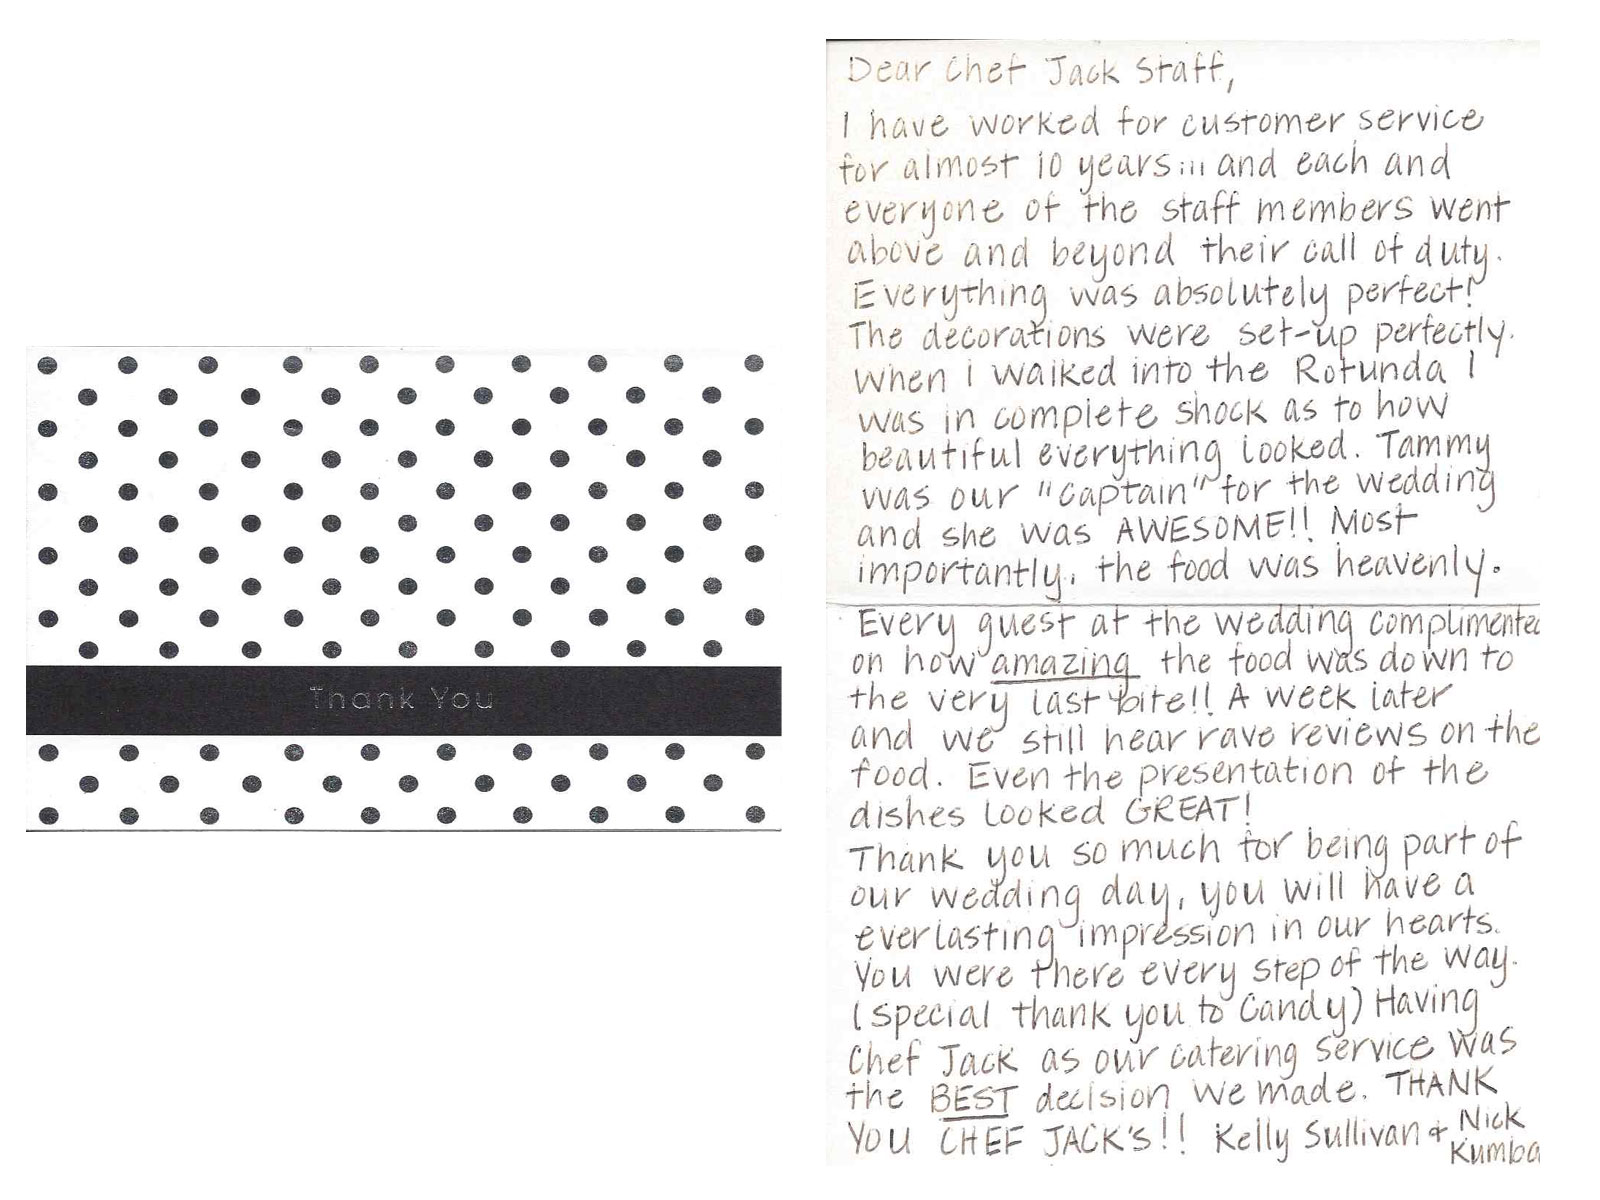 Thank You
Dear Chef Jack Staff,
I have worked for customer service
for almost 10 years... and each and
everyone of the staff members went
above and beyond their call of duty.
Everything was absolutely perfect!
The decorations were set-up perfectly.
When I walked into the Rotunda I
was in complete shock as to how
beautiful everything looked. Tammy
was our "captain" for the wedding
and she was AWESOME!! Most
importantly, the food was heavenly.
Every guest at the wedding complimented
on how amazing the food was down to
the very last bite!! A week later
and we still hear rave reviews on the
food. Even the presentation of the
dishes looked GREAT!
Thank you so much for being part of
our wedding day, you will have a
everlasting impression in our hearts.
You were there every step of the way.
(special thank you to Candy) Having
Chef Jack as our catering service was
the BEST decision we made. THANK
YOU CHEF JACK'S!! Kelly Sullivan & Nick
Kumba